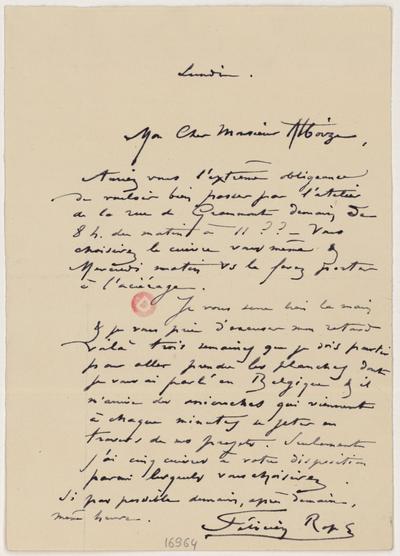 Lundi.
Mon Cher Monsieur Alboize,
Auriez vous l'extrême obligeance
de vouloir bien passer par l'atelier
de la rue de Grammont demain de
8 h. du matin à 11 ?? — Vous
choisirez le cuivre vous même &
Mercredi matin vs le ferez porter
à l'aciérage.
Je vous serre bien la main
& je vous prie d'excuser mon retard
voilà trois semaines que je dois partir
pour aller prendre les planches dont
je vous ai parlé en Belgique & il
m'arrive des anicroches qui viennent
à chaque minute se jeter en
travers de mes projets. Seulement
j'ai cinq cuivres à votre disposition
parmi lesquels vous choisirez.
Si pas possible demain, après demain,
même heure.
Félicien Rops
16964